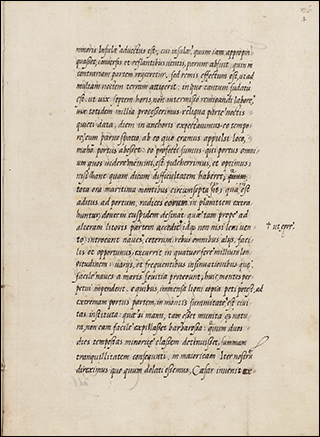 minoris Insulæ aduectus est, cui insulæ, quum iam appropin
quasset, conuersis et reflantibus uentis, parum abfuit, quin in
contrariam partem reijceretur, sed remis effectum est, ut ad
multam noctem terram attigerit. in quo tantum sudatũ
est, ut uix septem horis, non intermisso remigandi labore,
uix totidem millia processerimus. reliqua parte noctis
quieti data, diem in anchoris expectauimus eo tempo
re, cum paruo spatio ab eo quo eramus appulsi loco,
mahō portus abesset. eo profecti sumus. qui portus omni
um quos uiderimus est pulcherrimus, et optimus:
nisi quam diam difficultatem haberet,
tota ora maritima montibus circumsepta sit: qua est
aditus ad portum, radices eorum in planitiem extera
buntur, donec in cuspidem desinat quæ tam prope ad
alteram litoris partem accedit: idqȝ non nisi leni uen
to, introeant naues, cæterum, rebus omnibus alijs, faci
lis et opportunus, excurrit in quatuor fere millium lon
gitudinem: uarijs, et frequentibus insinuationibus quæ
facile naues a maris sæuitia protegunt, huic montes per
petui impendent. e quibus, immensa ligni copia peti potest, ad
extremam portus partem, in montis summitate est ciui
tas instituta: quæ ui manu, tam esset munita qȝ natu
ra, non eam facile expilasset barbarossa: quum duos
dies tempestas minoricæ classem detinuisset, summam
tranquillitatem consequuti, in maioricam Iter nostrũ
direximus quo quum delati essemus, Cæsar inuenit ex
† ut ægre